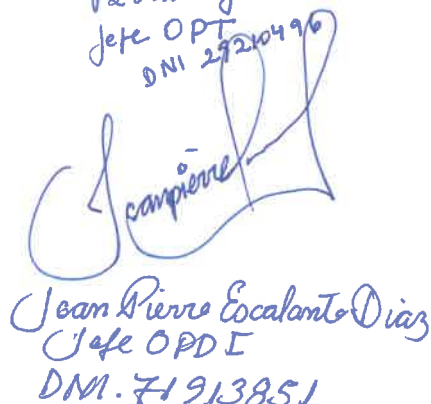 Jefe OPT
DNI 29210496
Jeanpierre
Jean Pierre Escalante Diaz
Jefe OPDI
DNI. 71913851